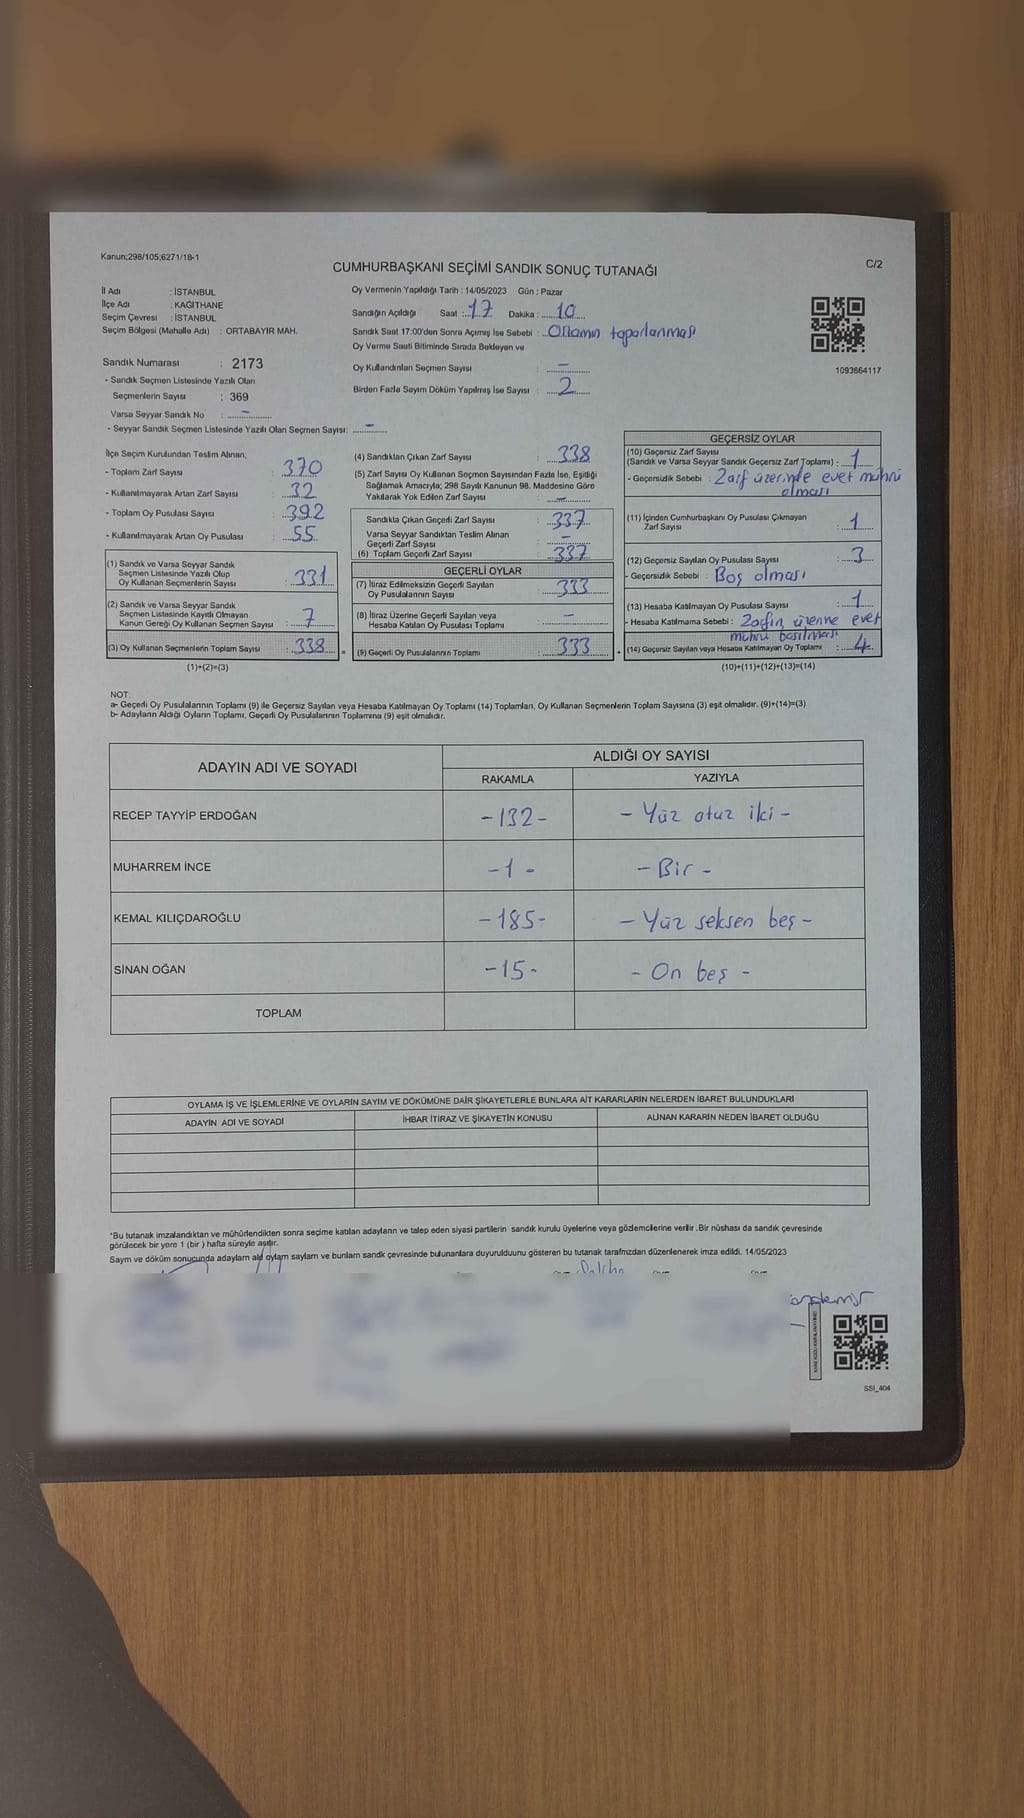 Kanun;298/105;6271/18-1
C/2
CUMHURBAŞKANI SEÇİMİ SANDIK SONUÇ TUTANAĞI
İl Adı : İSTANBUL
İlçe Adı : KAĞITHANE
Seçim Çevresi : İSTANBUL
Seçim Bölgesi (Mahalle Adı) : ORTABAYIR MAH.
Sandık Numarası : 2173
- Sandık Seçmen Listesinde Yazılı Olan
Seçmenlerin Sayısı : 369
Varsa Seyyar Sandık No : -
- Seyyar Sandık Seçmen Listesinde Yazılı Olan Seçmen Sayısı: -
Oy Vermenin Yapıldığı Tarih : 14/05/2023 Gün : Pazar
Sandığın Açıldığı Saat : 17 Dakika : 10
Sandık Saat 17:00'den Sonra Açılmış İse Sebebi : Ortamın toparlanması
Oy Verme Saati Bitiminde Sırada Bekleyen ve
Oy Kullandırılan Seçmen Sayısı : -
Birden Fazla Sayım Döküm Yapılmış İse Sayısı : 2
1093664117
İlçe Seçim Kurulundan Teslim Alınan;
- Toplam Zarf Sayısı : 370
- Kullanılmayarak Artan Zarf Sayısı : 32
- Toplam Oy Pusulası Sayısı : 392
- Kullanılmayarak Artan Oy Pusulası : 55
(1) Sandık ve Varsa Seyyar Sandık
Seçmen Listesinde Yazılı Olup
Oy Kullanan Seçmenlerin Sayısı : 331
(2) Sandık ve Varsa Seyyar Sandık
Seçmen Listesinde Kayıtlı Olmayan
Kanun Gereği Oy Kullanan Seçmen Sayısı : 7
(3) Oy Kullanan Seçmenlerin Toplam Sayısı : 338
(1)+(2)=(3)
(4) Sandıktan Çıkan Zarf Sayısı : 338
(5) Zarf Sayısı Oy Kullanan Seçmen Sayısından Fazla İse, Eşitliği
Sağlamak Amacıyla; 298 Sayılı Kanunun 98. Maddesine Göre
Yakılarak Yok Edilen Zarf Sayısı : -
Sandıkta Çıkan Geçerli Zarf Sayısı : 337
Varsa Seyyar Sandıktan Teslim Alınan
Geçerli Zarf Sayısı : -
(6) Toplam Geçerli Zarf Sayısı : 337
GEÇERLİ OYLAR
(7) İtiraz Edilmeksizin Geçerli Sayılan
Oy Pusulalarının Sayısı : 333
(8) İtiraz Üzerine Geçerli Sayılan veya
Hesaba Katılan Oy Pusulası Toplamı : -
(9) Geçerli Oy Pusulalarının Toplamı : 333
=
+
GEÇERSİZ OYLAR
(10) Geçersiz Zarf Sayısı
(Sandık ve Varsa Seyyar Sandık Geçersiz Zarf Toplamı) : 1
- Geçersizlik Sebebi : Zarf üzerinde evet mührü
olması
(11) İçinden Cumhurbaşkanı Oy Pusulası Çıkmayan
Zarf Sayısı : 1
(12) Geçersiz Sayılan Oy Pusulası Sayısı : 3
- Geçersizlik Sebebi : Boş olması
(13) Hesaba Katılmayan Oy Pusulası Sayısı : 1
- Hesaba Katılmama Sebebi : Zarfın üzerine evet
mührü basılması
(14) Geçersiz Sayılan veya Hesaba Katılmayan Oy Toplamı : 4
(10)+(11)+(12)+(13)=(14)
NOT:
a- Geçerli Oy Pusulalarının Toplamı (9) ile Geçersiz Sayılan veya Hesaba Katılmayan Oy Toplamı (14) Toplamları, Oy Kullanan Seçmenlerin Toplam Sayısına (3) eşit olmalıdır. (9)+(14)=(3)
b- Adayların Aldığı Oyların Toplamı, Geçerli Oy Pusulalarının Toplamına (9) eşit olmalıdır.
ADAYIN ADI VE SOYADI ALDIĞI OY SAYISI
RAKAMLA YAZIYLA
RECEP TAYYİP ERDOĞAN -132- - Yüz otuz iki -
MUHARREM İNCE -1- - Bir -
KEMAL KILIÇDAROĞLU -185- - Yüz seksen beş -
SİNAN OĞAN -15- - On beş -
TOPLAM
OYLAMA İŞ VE İŞLEMLERİNE VE OYLARIN SAYIM VE DÖKÜMÜNE DAİR ŞİKAYETLERLE BUNLARA AİT KARARLARIN NELERDEN İBARET BULUNDUKLARI
ADAYIN ADI VE SOYADI İHBAR İTİRAZ VE ŞİKAYETİN KONUSU ALINAN KARARIN NEDEN İBARET OLDUĞU
*Bu tutanak imzalandıktan ve mühürlendikten sonra seçime katılan adayların ve talep eden siyasi partilerin sandık kurulu üyelerine veya gözlemcilerine verilir .Bir nüshası da sandık çevresinde
görülecek bir yere 1 (bir ) hafta süreyle asılır.
Sayım ve döküm sonucunda adayların ald oyların sayların ve bunların sandk çevresinde bulunanlara duyurulduunu gösteren bu tutanak tarafmzdan düzenlenerek imza edildi. 14/05/2023
SSI_404